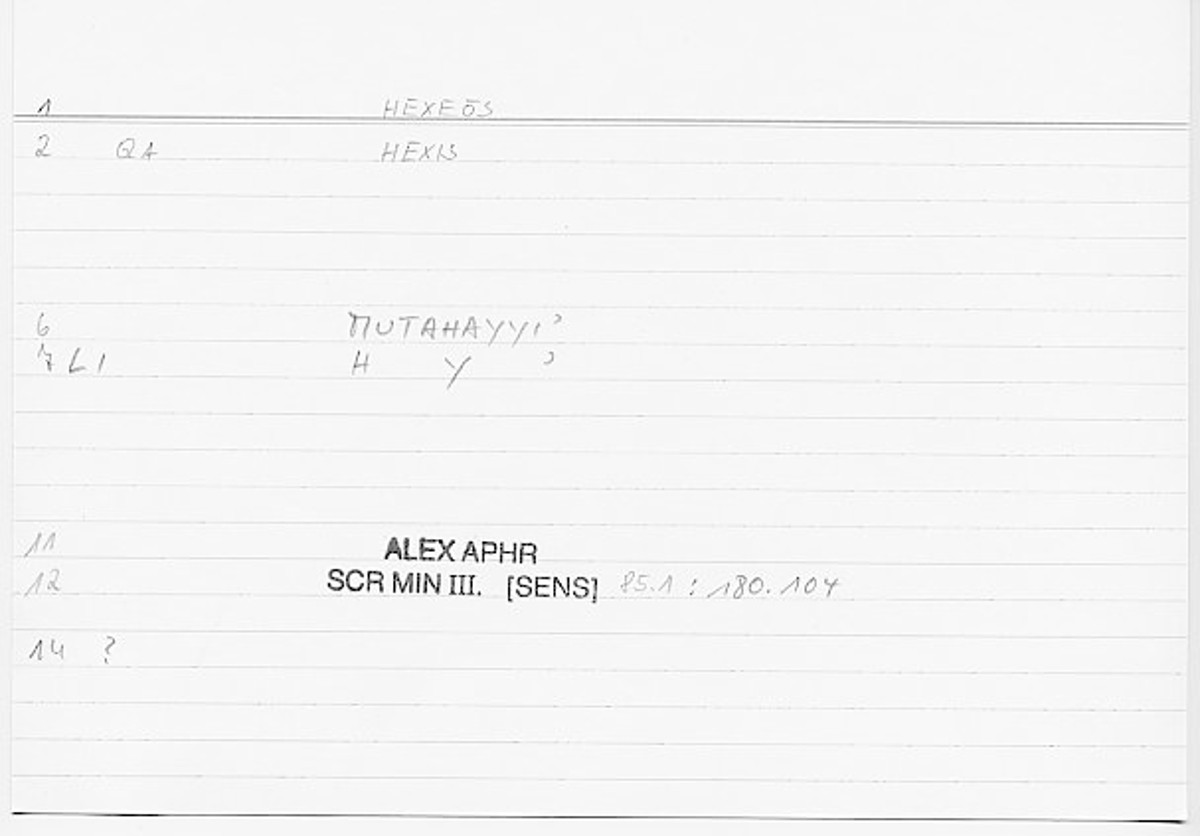 1 HEXEŌS
2 QA HEXIS
6 MUTAHAYYI ʾ
7 LI H Y ʾ
11 ALEX APHR
12 SCR MIN III. [SENS] 85.1 : 180.104
14 ?